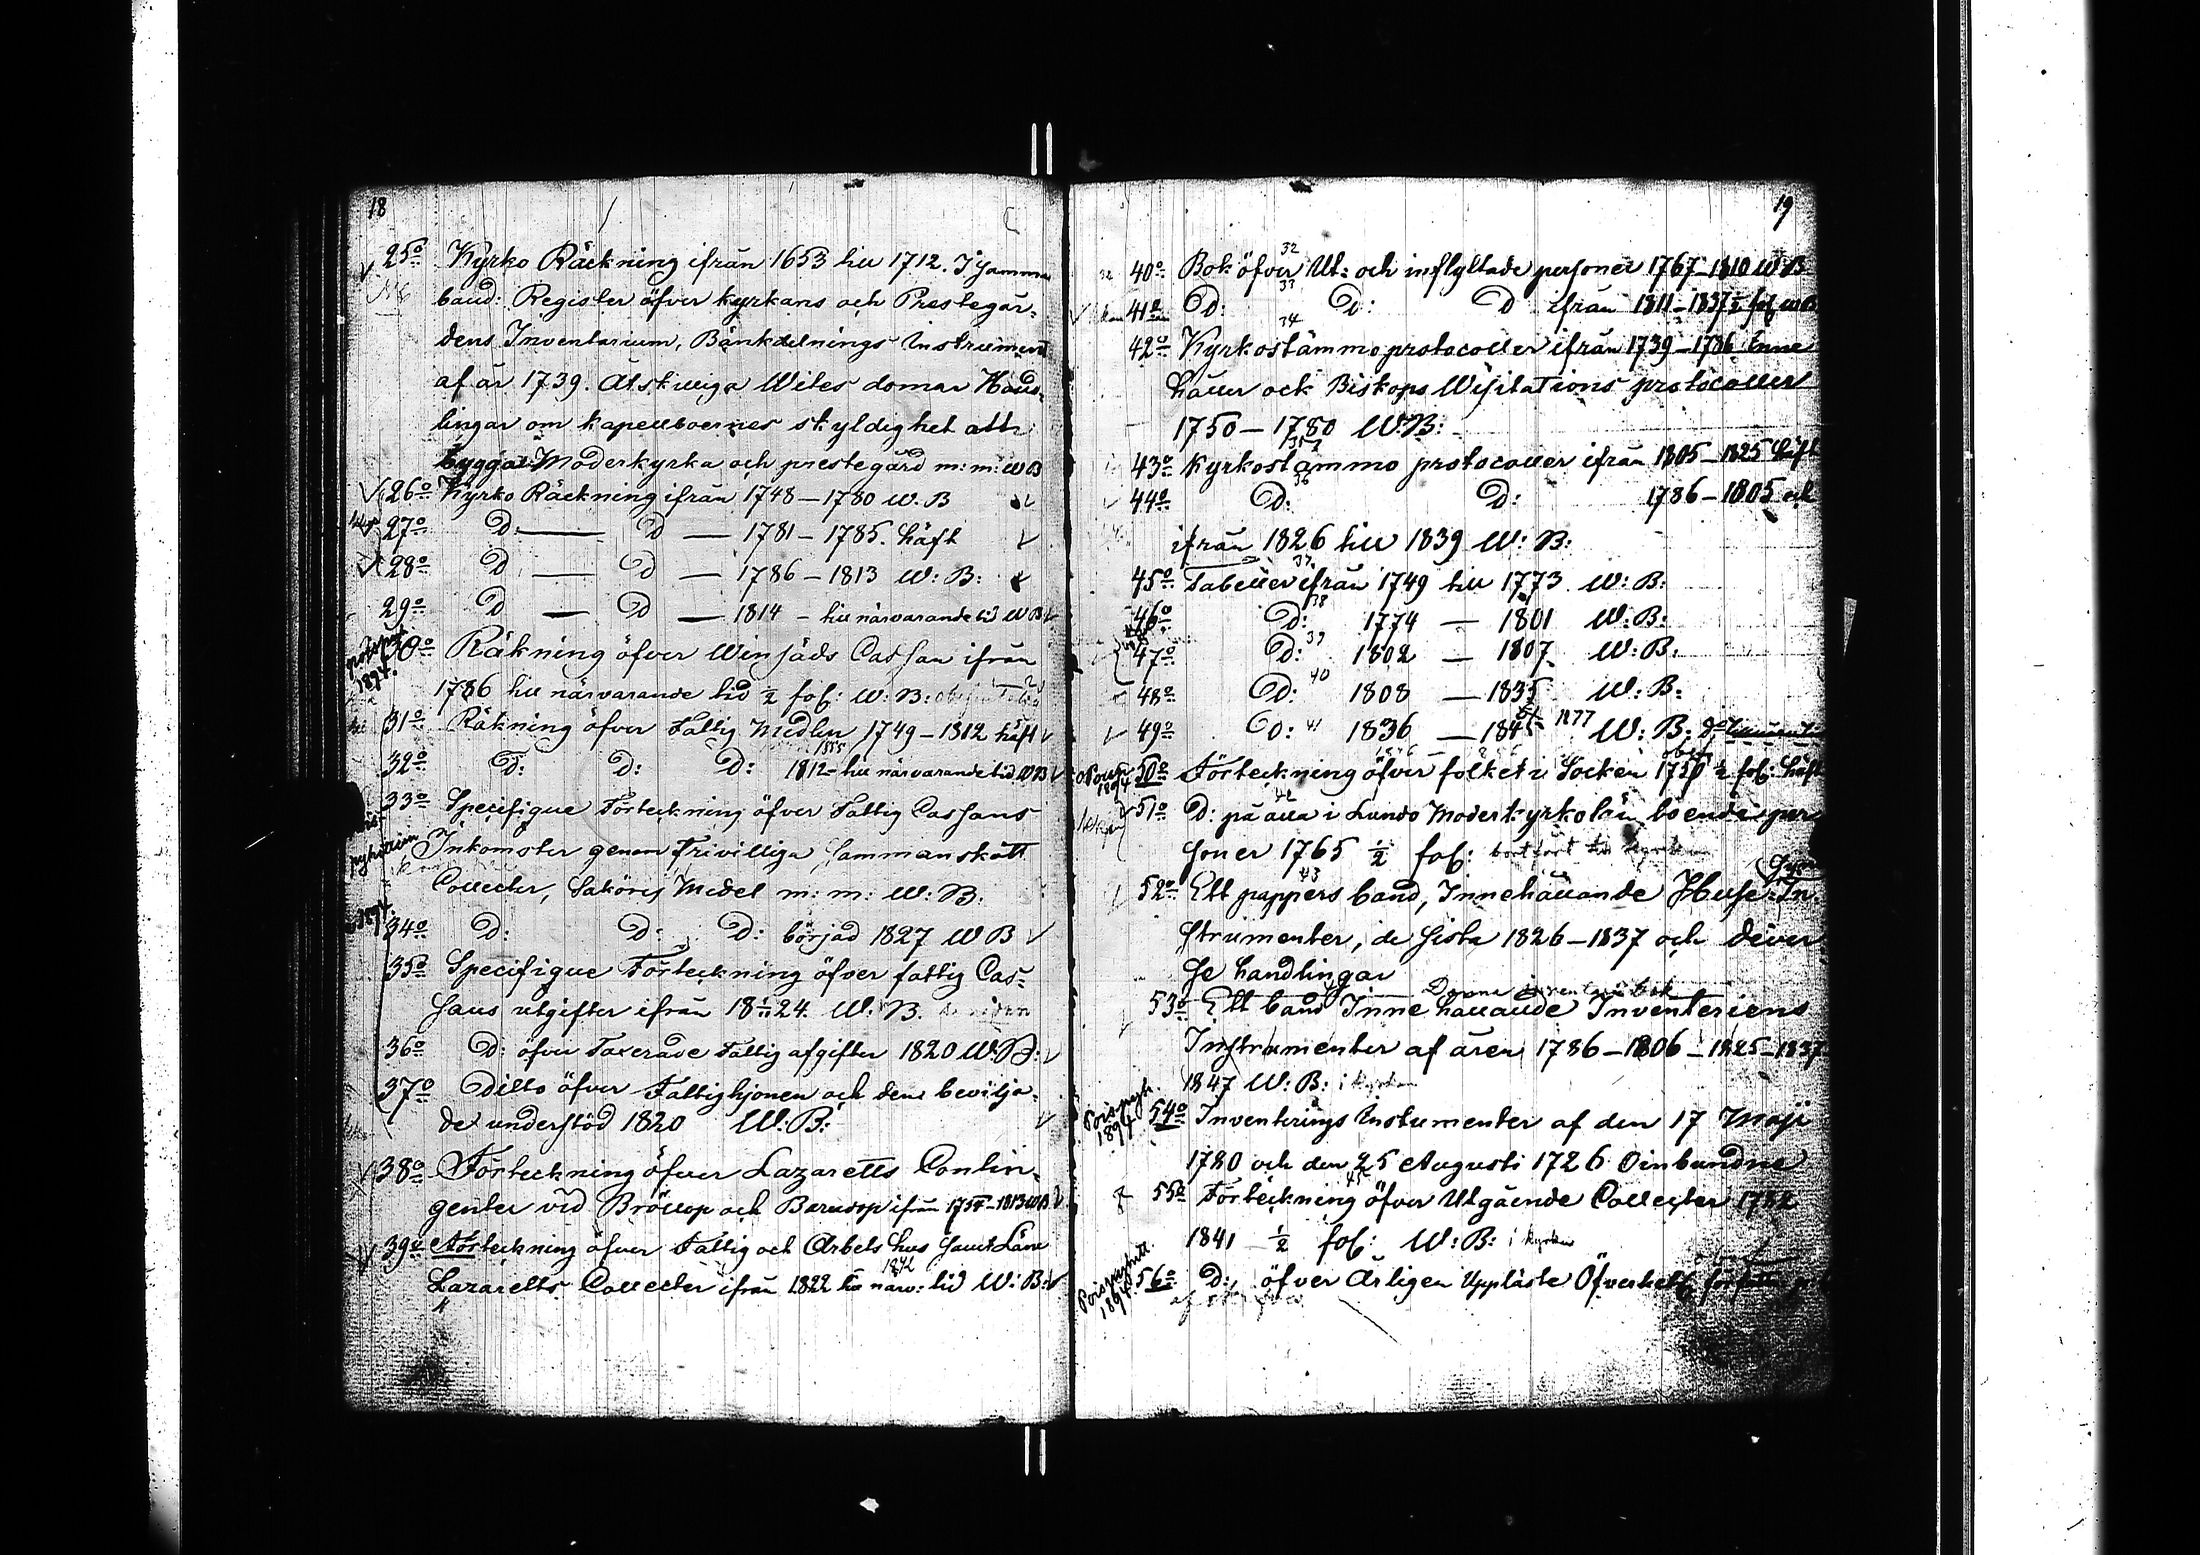 18
25o Kyrko Räckning ifrån 1653 till 1712. I samma
band: Register öfver kyrkans och Prestegår-
dens Inventarium, Bänkdelnings Instrument
af år 1739. Åtskilliga Wites domar Hand-
lingar om kapellboernes skyldighet att
bygga Moderkyrka och prestegård m: m: W B
26o Kyrko Räckning ifrån 1748 – 1780 W. B
27o D: — D — 1781 – 1785. häft
28o D — D — 1786 – 1813 W: B:
29o D — D — 1814 – till närvarande tid W B
30o Räkning öfver Winsäds Cassan ifrån
1894.
1786 till närvarande tid ½ fol: W: B:
31o Räkning öfver Fattig Medlen 1749 – 1812 häft
32o D: D: D: 1812 – till närvarande tid W B
33o Specifique Förteckning öfver Fattig Cassans
Inkomster genom Frivilliga Sammanskott
Collecter, Saköres Medel m: m: W: B:
1894.
34o D: D: D: börjad 1827 W B
35o Specifique Förteckning öfver fattig Cas-
sans utgifter ifrån 1824. W: B.
36o D: öfver Taxerade Fattig afgifter 1820 W: B:
37o Ditto öfver Fattighjonen och dem bevilja-
de understöd 1820 W: B:
38o Förteckning öfver Lazaretts Contin-
genter vid Bröllop och Barndop ifrån 1754 – 1813 W B
39o Förteckning öfver Fattig och Arbets hus samt Läns
1872
Lazaretts Collecter ifrån 1822 till närv: tid W: B:
19
32
40o Bok öfver Ut: och inflyttade personer 1767 – 1810 W B
33
41o D: D: D ifrån 1811 – 1837 ½ fol W B
34
42o Kyrkostämmo protocoller ifrån 1739 – 1786 Inne
håller ock Biskops Wisitations protocoller
1750 – 1780 W: B:
35
43o Kyrkostämmo protocoller ifrån 1805 – 1825 häft
36
44o D: D: 1786 – 1805 och
ifrån 1826 till 1839 W: B:
37
45o Tabeller ifrån 1749 till 1773 W: B:
46o D: 38 1774 — 1801 W: B:
47o D: 39 1802 — 1807 W: B:
48o D: 40 1808 — 1835 W: B:
49o D: 41 1836 — 1845 1877 W: B:
50o Förteckning öfver folket i Socken 1750 ½ fol: häft
1894
42
51o D: på alla i Lundo Moderkyrkolän boende per
soner 1765 ½ fol:
43
52o Ett pappers band, Innehållande Husesyns In-
strumenter, de sista 1826 – 1837 och diver
se handlingar
53o Ett band Inne hållande Inventeriens
Instrumenter af åren 1786 – 1806 – 1825 – 1837
1847 W: B: i kyrkan
54o Inventerings Instrumenter af den 17 Maji
1894
1780 och den 25 Augusti 1726 Oinbundne
45
55o Förteckning öfver Utgående Collecter 1782
1841 ½ fol: W: B: i kyrkan
56o D: öfver Årligen Uppläste Öfverhetl:
1894